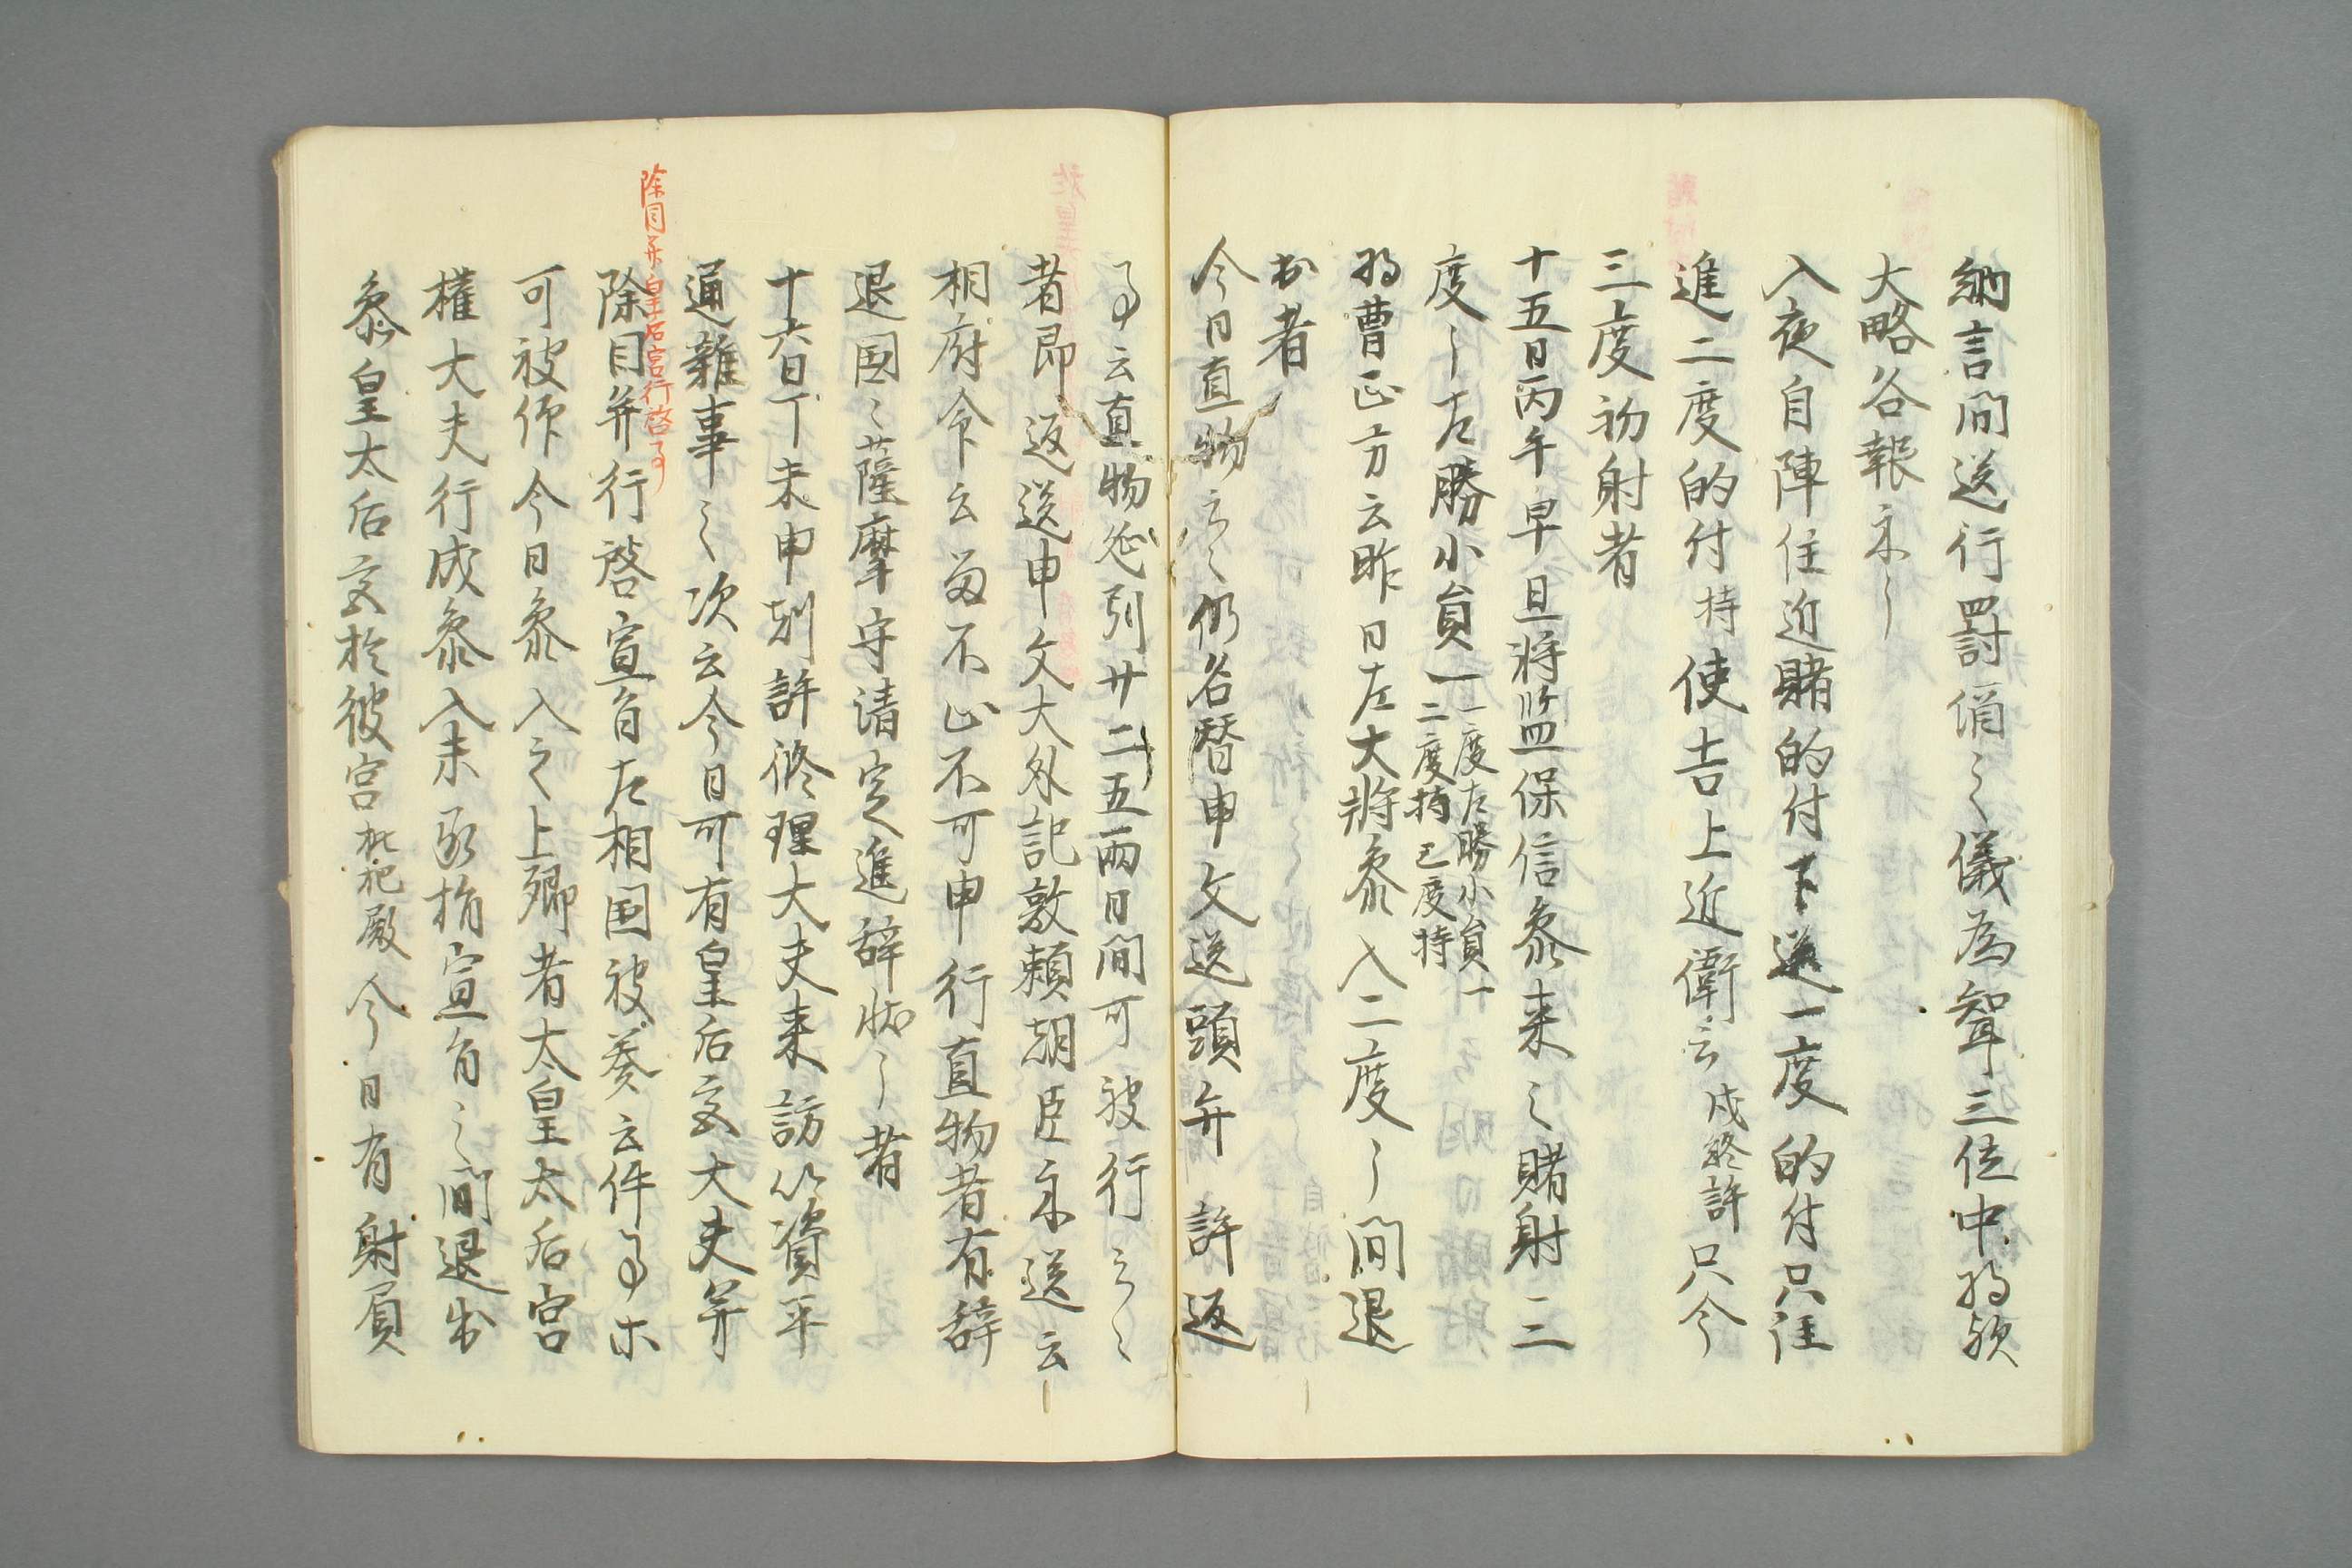 納言間送行罸酒之儀為聟三位中将欤
大略答報了
入夜自陣住近賭的付下送一度的付只注
進二度的付持使吉上近衛云戌終許只今
三度初射者
十五日丙午早旦将監保信参来之賭射三
度了左勝小負一一度左勝小負一
二度持三度持
将曹正方云昨日左大将参入二度了間退
出者
今日直物云々仍名替申文送頭弁許返
事云直物延引廿二五兩日間可被行云々
者即返送申文大外記敦頼朝臣示送云
相府命云不可申行直物者有辞
退国々薩摩守清定進辞状了者
十六日丁未申剋許修理大夫来訪以資平
通雜事之次云今日可有皇后宮大夫并
除目并皇后宮行啓事
除目并行啓宣旨左相国被奏云件事等
可被作今日参入之上卿者太皇太后宮
權大夫行成参入未承指宣旨之間退出
参皇太后宮於彼宮枇杷殿今日有射員